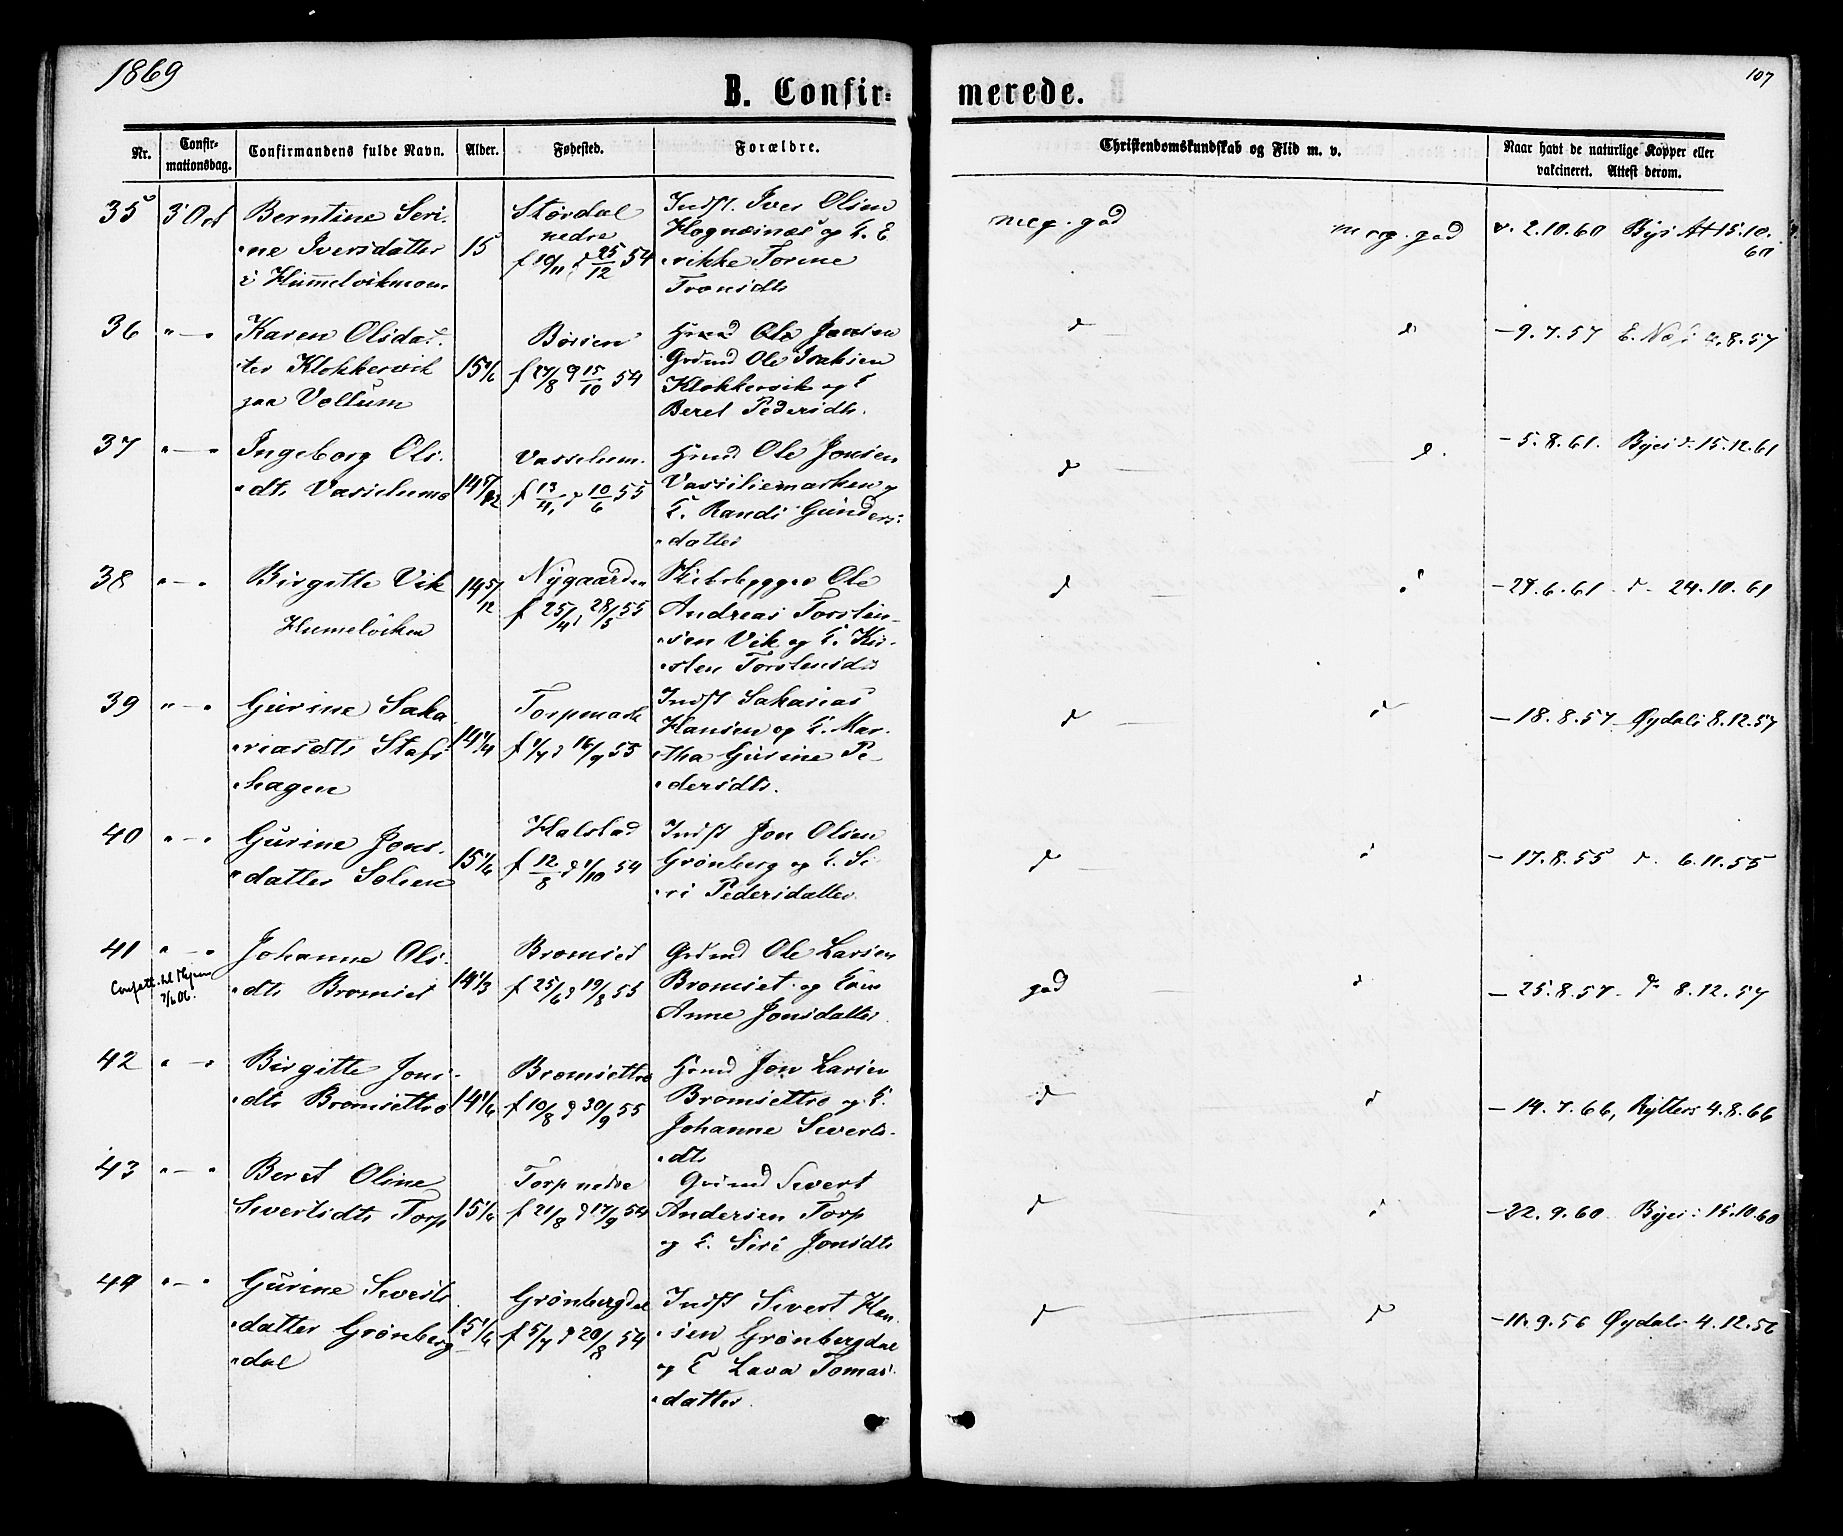 1869
107
B. Confir-
merede.
Nr.
Confir-
mationsdag.
Confirmandens fulde Navn.
Alder.
Fødested.
Forældre.
Christendomskundskab og Flid m. v.
Naar havt de naturlige Kopper eller
vakcineret. Attest derom.
35 3 Oct Berntine Seri-
ne Iversdatter
i Himmelvikmoen
15
Stördal
nedre
f 10/11 d 25/12 54
Indst. Iver Olsen
Hognæsnæs og H. E
rikke Torine
Tronsdtr
meg. god meg. god v. 2.10.60 Byes Att 15.10.
60
36 " — " Karen Olsdat-
ter Klokkervik
paa Vollum
15 1/6
Börsen
f 27/8 d 15/10 54
Grmd Ole Jonsen
Grdmd Ole Isaksen
Klokkervik og H
Beret Pedersdtr.
d — d — 9.7.57 E. Næs 2.8.57
37 " — " Ingeborg Ols-
dtr Vasslumo
14 5/12
Vasslum.
f 13/4 d 10/6 55
Hmd Ole Jonsen
Vassliemarken og
H. Randi Gunders-
datter
d — d. — 5.8.61. Byes d. 15.12.61
38 " — " Birgitte Vik
Humelviken
14 5/12
Nygaarden
f 25/4 d 28/5 55
Skibsbygger Ole
Andreas Torstin-
sen Vik og H. Kir-
sten Torstensdtr
d — d — 27.6.61 d. 24.10.61
39 " — " Gurine Saka-
riasdtr Stafs-
hagen
14 1/4
Torpmark
f 1/7 d 16/9 55
Indst Sakarias
Hansen og H. Mar-
tha Gurine Pe-
dersdtr.
d — d — 18.8.57 Øydals 8.12.57
40 " — " Gurine Jons-
datter Solien
15 1/6
Halstad
f 12/8 d 1/10 54
Indst Jon Olsen
Grönberg og H. Si-
ri Pedersdatter
d — d — 17.8.55 d. 6.11.55
41 " — " Johanne Ols-
dtr Bromset
14 1/3
Bromset
f 25/6 d 19/8 55
Grdmd Ole Larsen
Bromset og Hus
Anne Jonsdatter
god — d — 25.8.57 d. 8.12.57
42 " — " Birgitte Jons-
dtr Bromsettro
14 1/6
Bromsettro
f 10/8 d 30/9 55
Hmd Jon Larsen
Bromsettro og H.
Johanne Siverts-
dtr
d — d — 14.7.66, Rytters 4.8.66
43 " — " Beret Oline
Sivertsdtr Torp
15 1/6
Torp nedre
f 21/8 d 17/9 54
Grdmd Sivert
Andersen Torp
og H. Siri Jonsdtr
d — d — 22.9.60 Byes: 15.10.60
44 " — " Gurine Siverts-
datter Grönberg-
dal
15 1/6
Grönbergdal
f 5/7 d 20/8 54
Indst Sivert Han-
sen Grönbergdal
og H Lava Tomas-
datter.
d — d — 11.9.56 Øydals 4.12.56